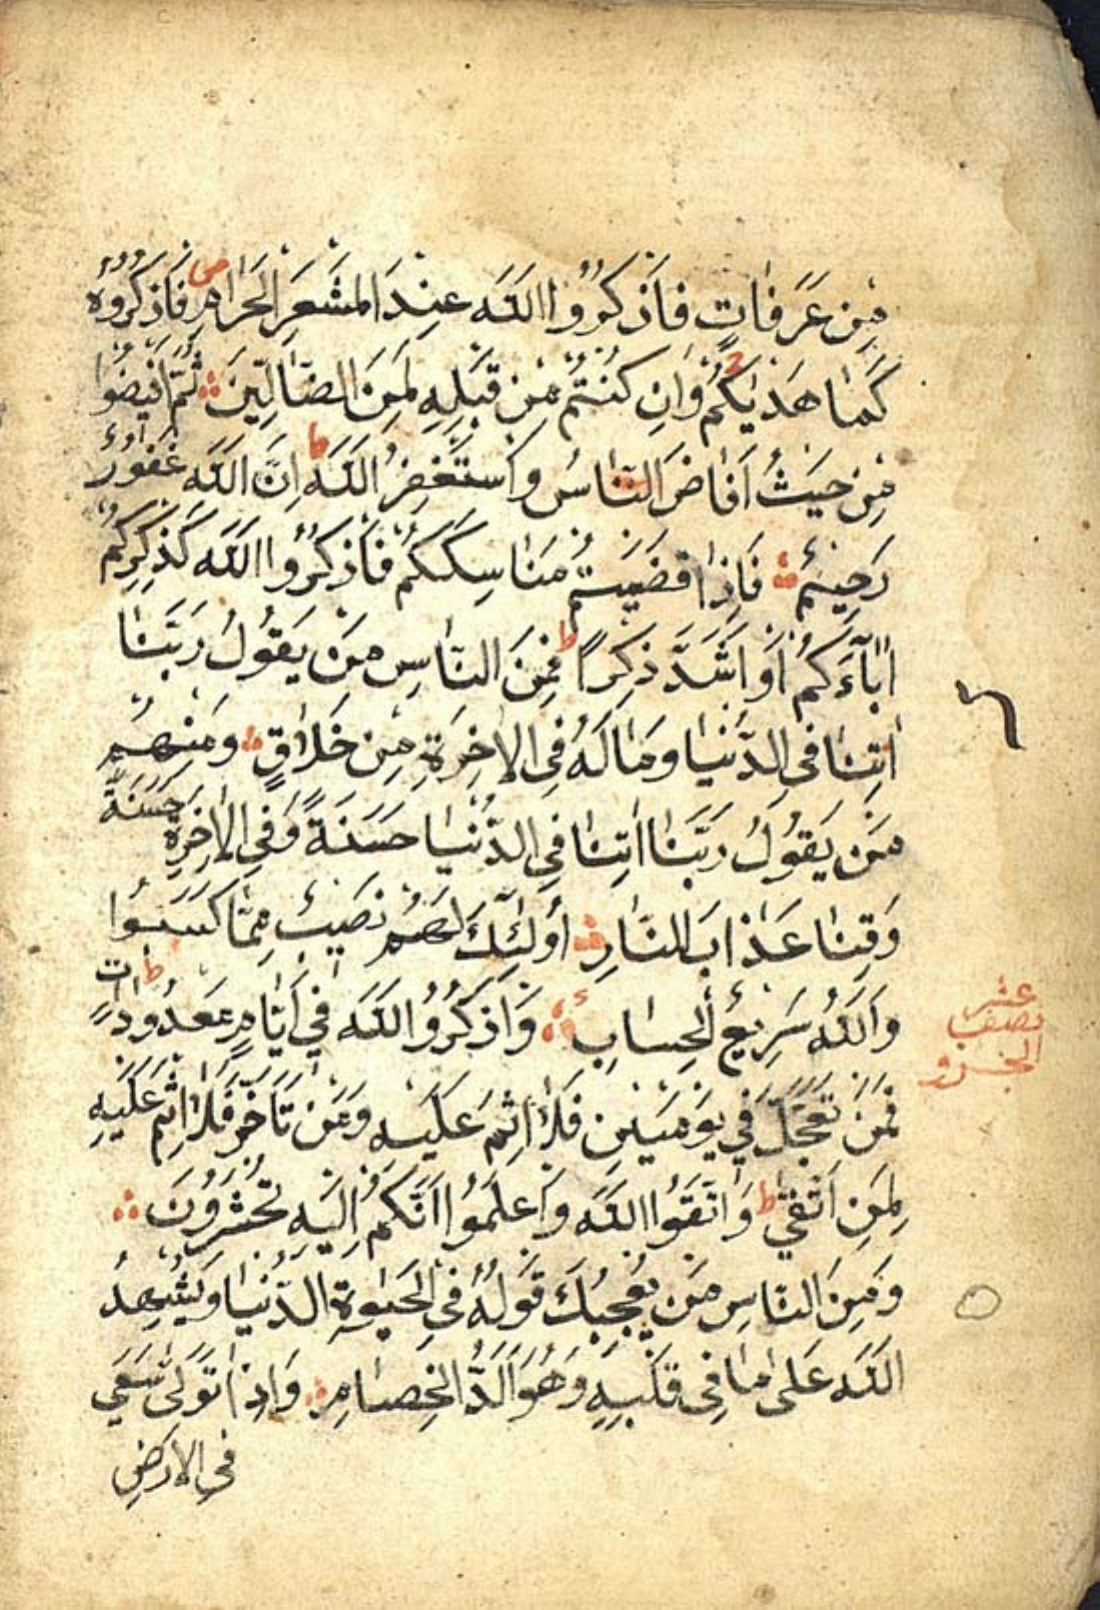 مِن عَرَفَاتٍ فَاذكُرُوا اللَّه عِندَ المَشعَرِ الحَرَامِ فَاذكُرُوهُ
كَمَا هَدٰيكُم وَاِن كُنتُم مِن قَبلِهِ لَمِنَ الضَّالِّينَ ثُمَّ اَفِيضُوا
مِن حَيثُ اَفَاضَ النَّاسُ وَاستَغفِرُ اللَّه ط اِنَّ اللَّه غَفُورٌ
رَحِيمٌ فَاِذَا قَضَيتُم مَنَاسِكَكُم فَاذكُرُوا اللَّه كَذِكرِكُم
اٰبَآءَكُم اَو اَشَدَّ ذِكرًا ط فَمِنَ النَّاسِ مَن يَقُولُ رَبَّنَا
اٰتِنَا فِى الدُّنيَا وَمَا لَهُ فِى الاٰخِرَةِ مِن خَلَاقٍ وَمِنهُم
مَن يَقُولُ رَبَّنَا اٰتِنَا فِى الدُّنيَا حَسَنَةً وَفِى الاٰخِرَةِ حَسَنَةً
وَقِنَا عَذَابَ النَّارِ اُولٰئِكَ لَهُم نَصِيبٌ مِمَّا كَسَبُوا ط
وَاللَّهُ سَرِيعُ الحِسَابِ وَاذكُرُوا اللَّه فِى اَيَّامٍ مَعدُودَاتٍ
فَمَن تَعَجَّلَ فِى يَومَينِ فَلَا اِثمَ عَلَيهِ وَمَن تَاَخَّرَ فَلَا اِثمَ عَلَيهِ
لِمَنِ اتَّقٰى ط وَاتَّقُوا اللَّه وَاعلَمُوا اَنَّكُم اِلَيهِ تُحشَرُونَ
وَمِنَ النَّاسِ مَن يُعجِبُكَ قَولُهُ فِى الحَيٰوةِ الدُّنيَا وَيُشهِدُ
اللَّه عَلٰى مَا فِى قَلبِهِ وَهُوَ اَلَدُّ الخِصَامِ وَاِذَا تَوَلّٰى سَعٰى
فِى الاَرضِ
عشر
نصف
الجزو